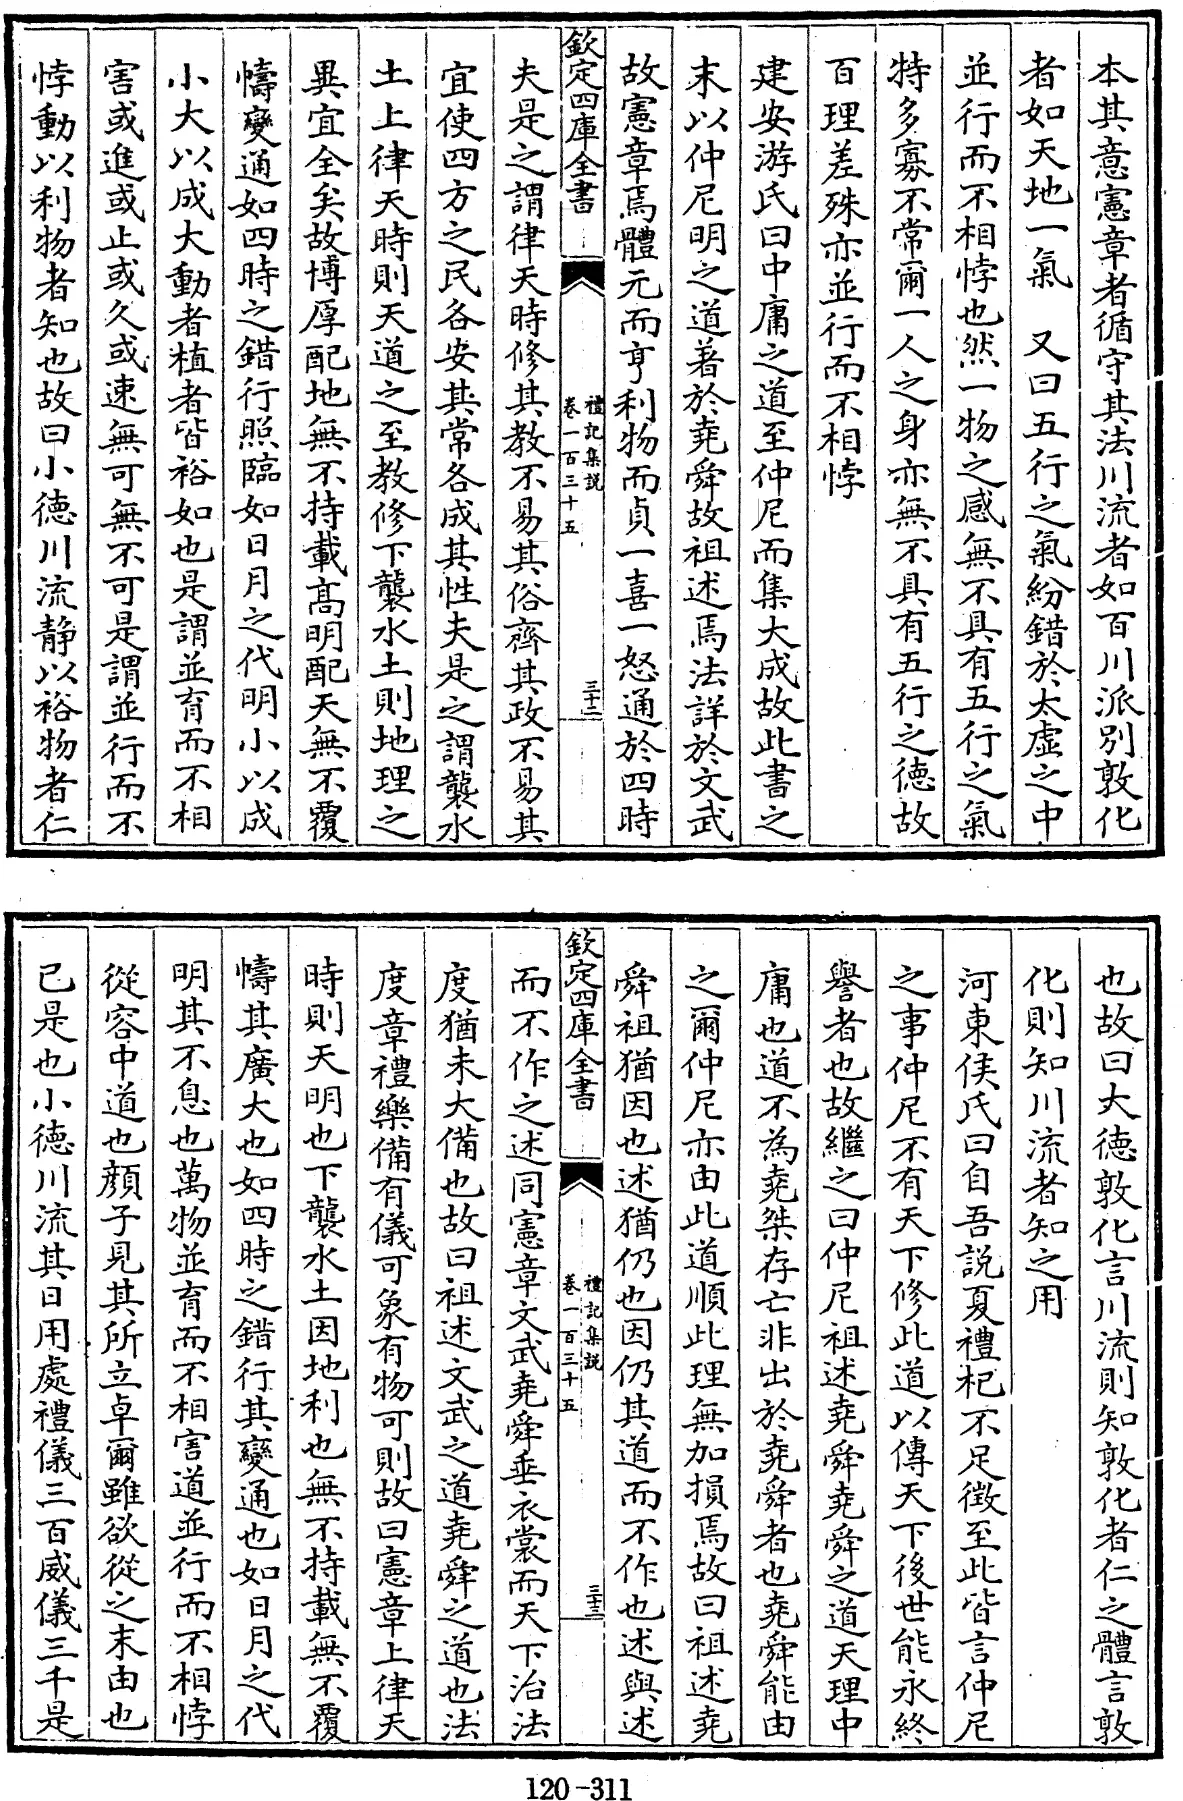 本其意憲章者循守其法川流者如百川派别敦化
者如天地一氣　又曰五行之氣紛錯於太虚之中
並行而不相悖也然一物之感無不具有五行之氣
特多寡不常爾一人之身亦無不具有五行之徳故
百理差殊亦並行而不相悖
建安游氏曰中庸之道至仲尼而集大成故此書之
末以仲尼明之道著於堯舜故祖述焉法詳於文武
故憲章焉體元而亨利物而貞一喜一怒通於四時
欽定四庫全書
禮記集説
卷一百三十五
三十二
夫是之謂律天時修其教不易其俗齊其政不易其
宜使四方之民各安其常各成其性夫是之謂襲水
土上律天時則天道之至教修下襲水土則地理之
異宜全矣故博厚配地無不持載髙明配天無不覆
幬變通如四時之錯行照臨如日月之代明小以成
小大以成大動者植者皆裕如也是謂並育而不相
害或進或止或久或速無可無不可是謂並行而不
悖動以利物者知也故曰小徳川流静以裕物者仁
也故曰大徳敦化言川流則知敦化者仁之體言敦
化則知川流者知之用
河東侯氏曰自吾説夏禮杞不足徴至此皆言仲尼
之事仲尼不有天下修此道以傳天下後世能永終
譽者也故繼之曰仲尼祖述堯舜堯舜之道天理中
庸也道不為堯桀存亡非出於堯舜者也堯舜能由
之爾仲尼亦由此道順此理無加損焉故曰祖述堯
舜祖猶因也述猶仍也因仍其道而不作也述與述
欽定四庫全書
禮記集説
卷一百三十五
三十三
而不作之述同憲章文武堯舜垂衣裳而天下治法
度猶未大備也故曰祖述文武之道堯舜之道也法
度章禮樂備有儀可象有物可則故曰憲章上律天
時則天明也下襲水土因地利也無不持載無不覆
幬其廣大也如四時之錯行其變通也如日月之代
明其不息也萬物並育而不相害道並行而不相悖
從容中道也顔子見其所立卓爾雖欲從之末由也
已是也小徳川流其日用處禮儀三百威儀三千是
120-311